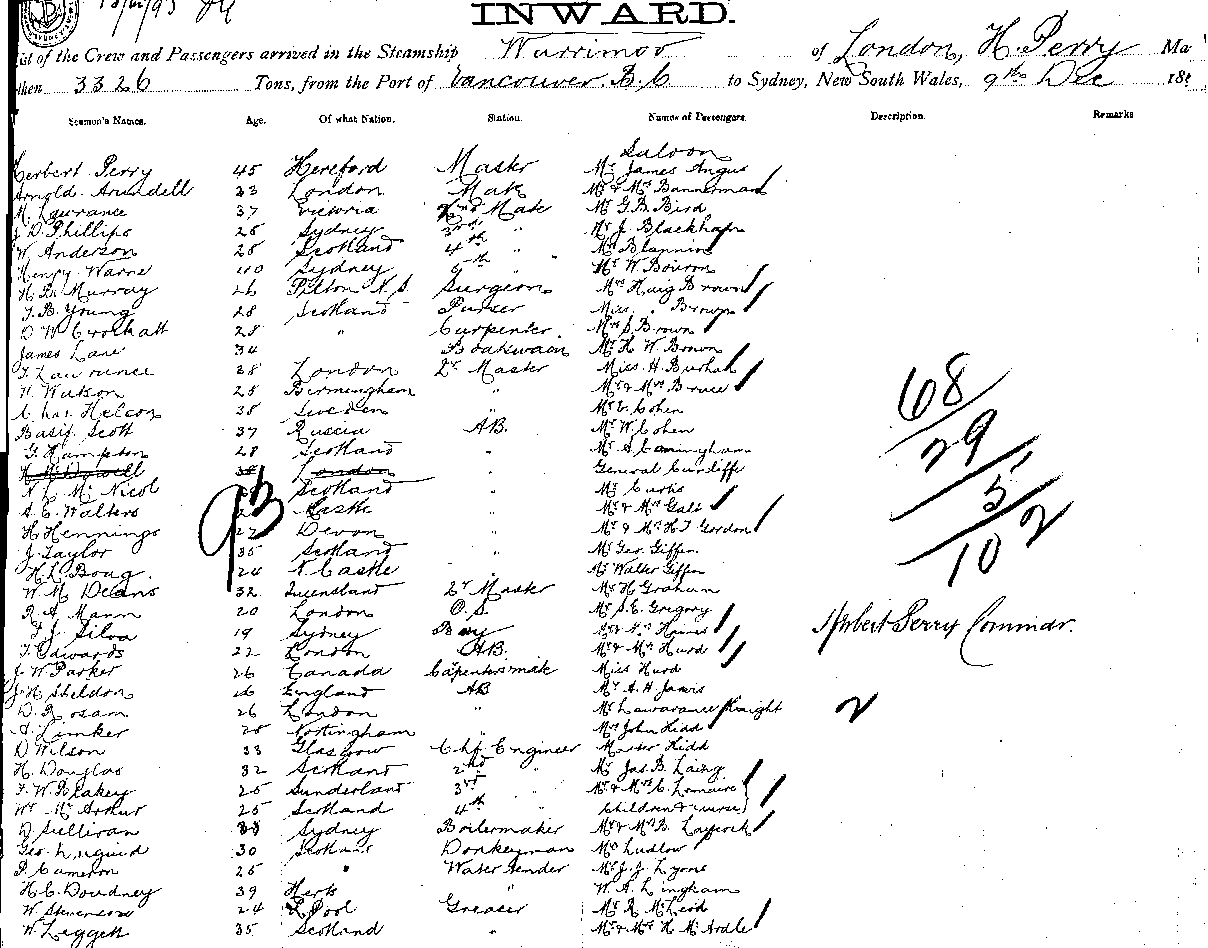 18/12/93
INWARD.
ist of the Crew and Passengers arrived in the Steamship Warrimoo of London, H. Perry Ma
then 3326 Tons, from the Port of Vancouver. B.C to Sydney, New South Wales, 9th Dec 18
Seamen's Names. Age. Of what Nation. Station. Names of Passengers. Description. Remarks
Saloon
Herbert Perry 45 Hereford Master Mr James Angus
Arnold Arundell 33 London Mate Mr & Mrs Bannerman
M. Lawrance 37 Victoria 2nd Mate Mr G.B. Bird
J D Phillips 25 Sydney 3rd " Mr J. Blackham
W. Anderson 25 Scotland 4th " Blannin
Henry Warne 40 Sydney 5th " Mr W Bouron
H. B. Murray 26 Picton N.S. Surgeon Mrs Haig Brown
T. B. Young 28 Scotland Purser Miss " Brown
D W Crockatt 28 " Carpenter Mrs S. Brown
James Lane 34 Boatswain Mr H W Brown
T. Lawrence 38 London Qr Master Miss H.
W. Watson 25 Birmingham " Mr & Mrs Bruce
Chas. Helcon 38 Sweden " Cohen
Basif Scott 37 Russia AB. Mr W. Cohen
G. Hampton 28 Scotland " Mr A Cunningham
London " General Cunliffe
N. L. McNicol Scotland " Mr Curtis
A. E. Walters Castle " Mr & Mrs Galt
H Hennings 22 Devon " Mr & Mrs H J Gordon
J. Taylor 35 Scotland " Mr Geo. Giffin
H. L. Boug. 24 N Castle Mr Walter Giffin
W. M. Deans 32 Queensland Qr Master Mr H Graham
R. A. Mann 20 London O.S. Mr S.E. Gregory
Silva 19 Sydney Boy Haines
T. Edwards 22 London AB. Mr & Mrs Hurd
J. W Parker 26 Canada Carpenters mate Miss Hurd
J. H Sheldon 26 England AB Mr A. H Jarvis
D. Rosam 26 London " Mr Lawarance Knight
A. Limker 25 Nottingham " Mrs John Kidd
D Wilson 33 Glasgow Chf. Engineer Master Kidd
H. Douglas 32 Scotland 2nd " Mr Jas. B. Laing
T. W. Blakey 25 Sunderland 3rd " Mr & Mrs C.
Wm McArthur 25 Scotland 4th " Children & nurse
D Sullivan 33 Sydney Boilermaker Mr & Mrs B. Laycock
Geo. 30 Scotland Donkeyman Ludlow
P. Cameron 25 " Water Tender Mr J. J. Lyons
H. C. Doudney 39 Herts " W. A. Lingham
W. Stevenson 24 L Pool Greaser Mr R McLeod
W Leggett 35 Scotland " Mr & Mrs H McArdle
93
68
29
5
102
Herbert Perry Commdr.
2